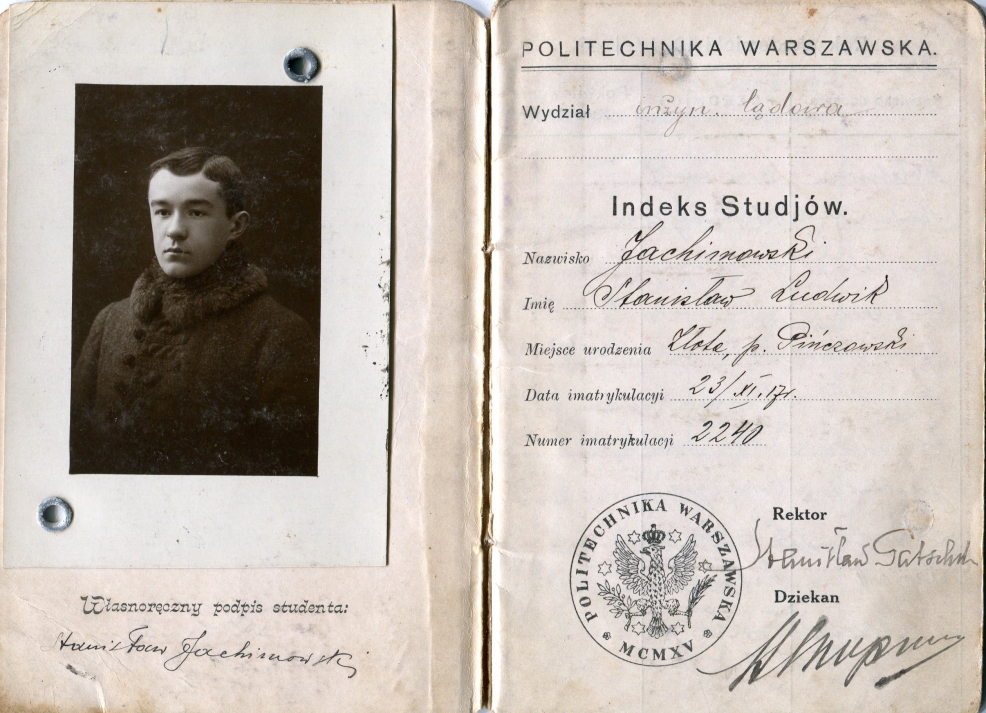 Własnoręczny podpis studenta:
Stanisław Jachimowski
POLITECHNIKA WARSZAWSKA.
Wydział inżyn. lądowa
Indeks Studjów.
Nazwisko Jachimowski
Imię Stanisław Ludwik
Miejsce urodzenia Złota, p. Pińczowski
Data imatrykulacyi 23/XI.17r.
Numer imatrykulacji 2240
POLITECHNIKA WARSZAWSKA
MCMXV
Rektor
Stanisław
Dziekan